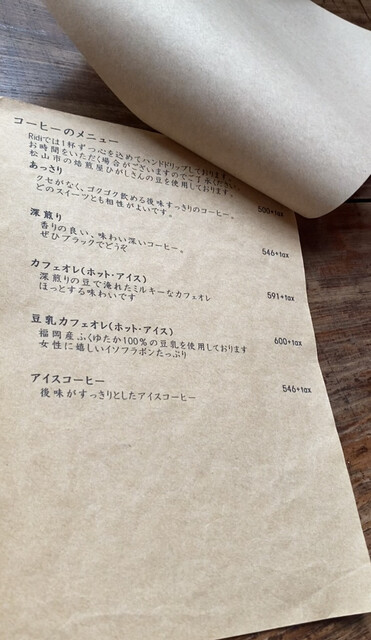 コーヒーのメニュー
Ridiでは1杯ずつ心を込めてハンドドリップしております。
お時間をいただく場合がございますのでご了承ください。
松山市の焙煎屋ひがしさんの豆を使用しております。
あっさり 500+tax
クセがなく、ゴクゴク飲める後味すっきりのコーヒー。
どのスイーツとも相性がよいです。
深煎り 546+tax
香りの良い、味わい深いコーヒー。
ぜひブラックでどうぞ
カフェオレ(ホット・アイス) 591+tax
深煎りの豆で淹れたミルキーなカフェオレ
ほっとする味わいです
豆乳カフェオレ(ホット・アイス) 600+tax
福岡産ふくゆたか100%の豆乳を使用しております
女性に嬉しいイソフラボンたっぷり
アイスコーヒー 546+tax
後味がすっきりとしたアイスコーヒー